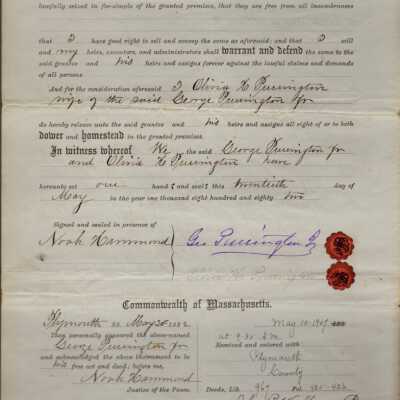 lawfully seized in fee-simple of the granted premises, that they are free from all incumbrances
that I have good right to sell and convey the same as aforesaid; and that I will
and my heirs, executors, and administrators shall warrant and defend the same to the
said grantee and his heirs and assigns forever against the lawful claims and demands
of all persons
And for the consideration aforesaid I, Olivia H. Purrington
wife of the said George Purrington Jr
do hereby release unto the said grantee and his heirs and assigns all right of or to both
dower and homestead in the granted premises.
In witness whereof We the said George Purrington Jr
and Olivia H. Purrington have
hereunto set our hands and seals this twentieth day of
May in the year one thousand eight hundred and eighty two
Signed and sealed in presence of
Noah Hammond
Geo. Purrington Jr
Commonwealth of Massachusetts.
Plymouth ss. May 20 1882
Then personally appeared the above-named
George Purrington Jr
and acknowledged the above instrument to be
his free act and deed; before me,
Noah Hammond
Justice of the Peace.
May 10 1909
at 9-30 A.M.
Received and entered with
Plymouth
County
Deeds, Lib. 967